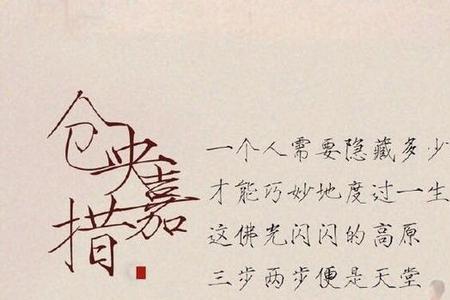 仓央嘉措
一个人需要隐藏多少
才能巧妙地度过一生
这佛光闪闪的高原
三步两步便是天堂